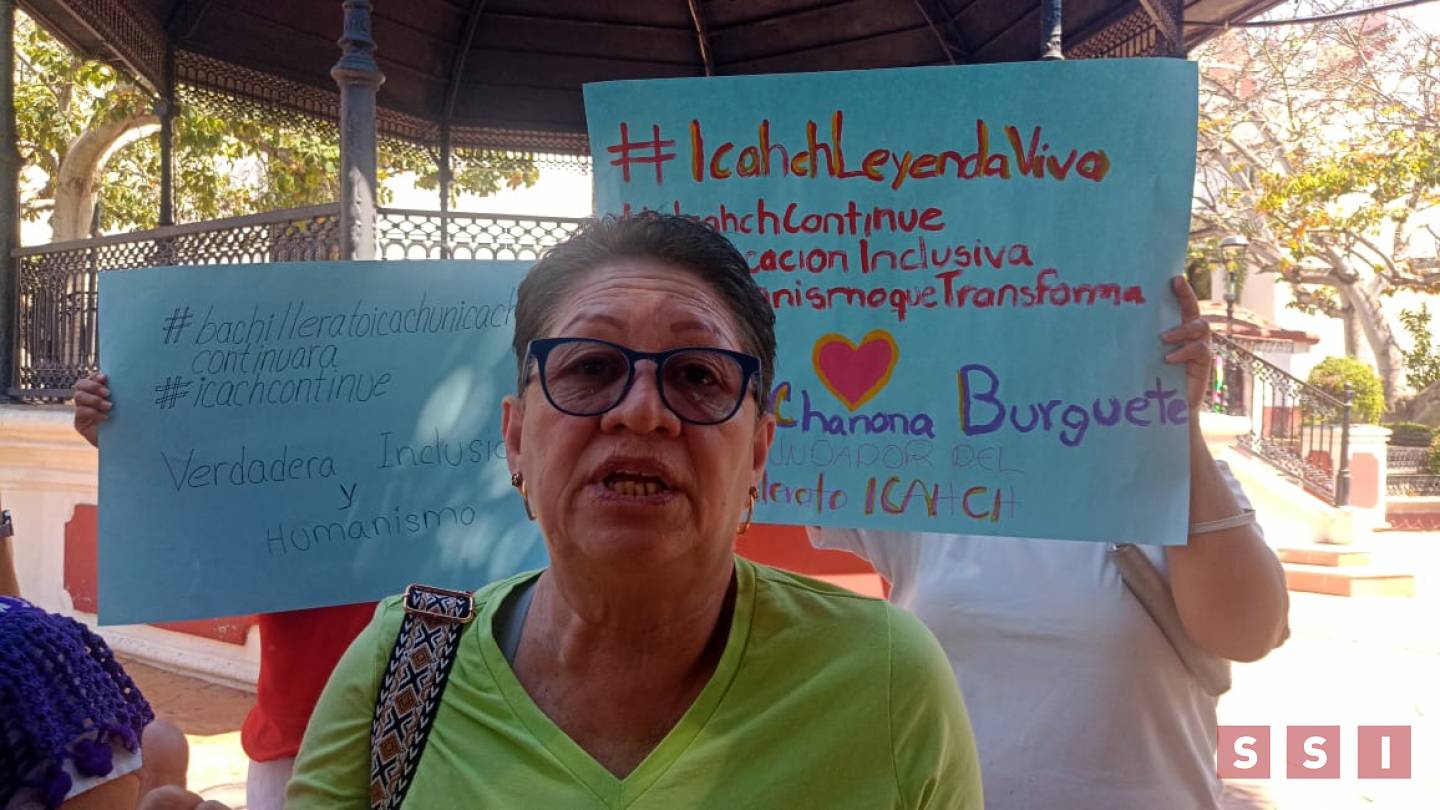 #bachilleratoicachunicach
continuara
#icachcontinue
Verdadera Inclusio
y
Humanismo
#IcahchLeyendaViva
ahchContinue
cacionInclusiva
anismoqueTransforma
Chanona Burguete
UNDADOR DEL
llerato ICAHCH
SSI